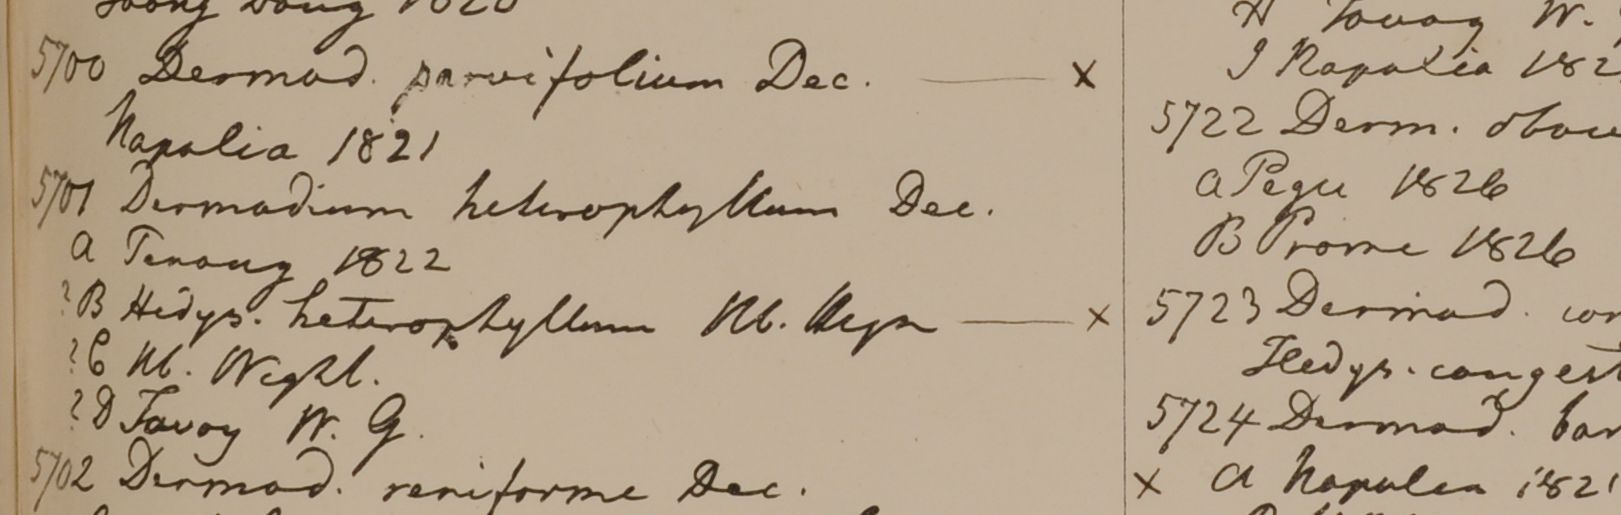 5700 Desmod. parvifolium Dec. — x
Napalia 1821
5701 Desmodium heterophyllum Dec.
A Penang 1822
?B Hedys. heterophyllum Hb. Heyn — x
?C Hb. Wight.
?D Tavoy W. G.
5702 Desmod. reniforme Dec.
H Tavoy W.
I Napalia 182
5722 Desm. obov
A Pegu 1826
B Prome 1826
5723 Desmod. con
Hedys. congest
5724 Desmod. bar
x A Napalia 1821